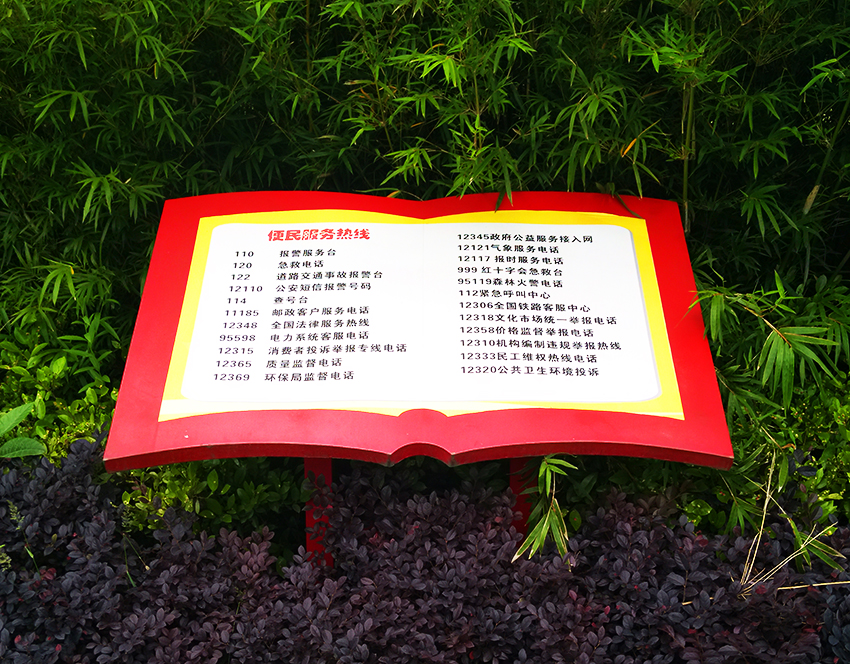 便民服务热线
110 报警服务台
120 急救电话
122 道路交通事故报警台
12110 公安短信报警号码
114 查号台
11185 邮政客户服务电话
12348 全国法律服务热线
95598 电力系统客服电话
12315 消费者投诉举报专线电话
12365 质量监督电话
12369 环保局监督电话
12345政府公益服务接入网
12121气象服务电话
12117 报时服务电话
999 红十字会急救台
95119森林火警电话
112紧急呼叫中心
12306全国铁路客服中心
12318文化市场统一举报电话
12358价格监督举报电话
12310机构编制违规举报热线
12333民工维权热线电话
12320公共卫生环境投诉